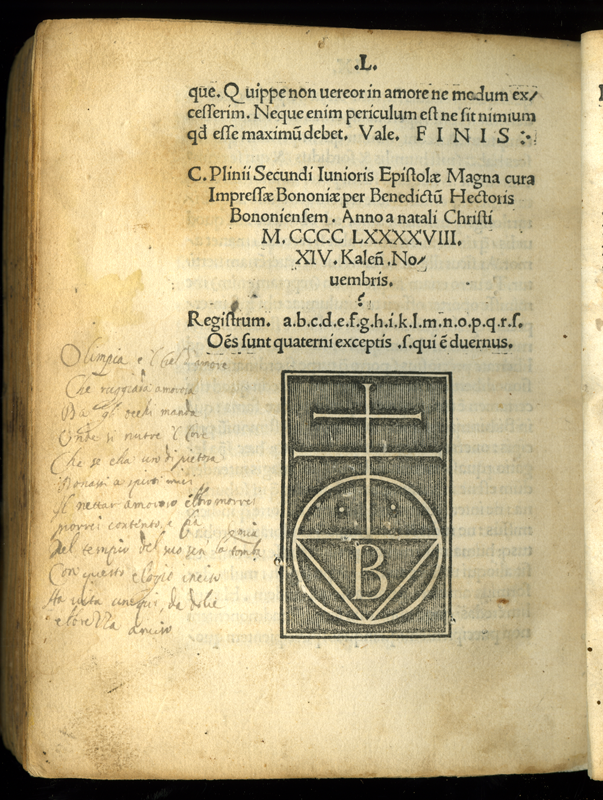 .L.
que. Quippe non uereor in amore ne modum ex/
cesserim. Neque enim periculum est ne sit nimium
qd esse maximũ debet. Vale. FINIS:.
C. Plinii Secundi Iunioris Epistolæ Magna cura
Impressæ Bononiæ per Benedictũ Hectoris
Bononiensem. Anno a natali Christi
M. CCCC LXXXXVIII.
XIV. Kaleñ. No/
uembris.
Registrum. a.b.c.d.e.f.g.h.i.k.l.m.n.o.p.q.r.s.
Oẽs sunt quaterni exceptis .s. qui ẽ duernus.
Olimpia e il amore
Che rugiada amorosa
occhi manda
Onde si nutre il core
Che se
Il nettar amoroso
porrei contento, e
Nel tempio del suo sen la tomba
Con questo elogio inciso
Ha vita
B